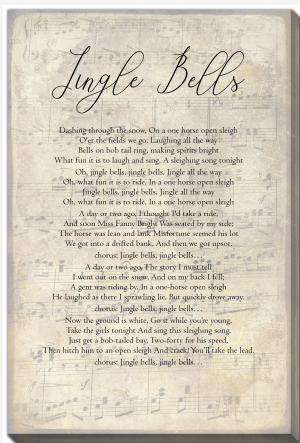 Jingle Bells
Dashing through the snow, On a one horse open sleigh
O'er the fields we go, Laughing all the way
Bells on bob tail ring, making spirits bright
What fun it is to laugh and sing, A sleighing song tonight
Oh, jingle bells, jingle bells, Jingle all the way
Oh, what fun it is to ride, In a one horse open sleigh
Jingle bells, jingle bells, Jingle all the way
Oh, what fun it is to ride, In a one horse open sleigh
A day or two ago, I thought I'd take a ride,
And soon Miss Fanny Bright Was seated by my side;
The horse was lean and lank Misfortune seemed his lot
We got into a drifted bank, And then we got upsot.
chorus: Jingle bells, jingle bells…
A day or two ago, The story I must tell
I went out on the snow, And on my back I fell;
A gent was riding by, In a one-horse open sleigh
He laughed as there I sprawling lie, But quickly drove away.
chorus: Jingle bells, jingle bells…
Now the ground is white, Go it while you're young,
Take the girls tonight And sing this sleighing song.
Just get a bob-tailed bay, Two-forty for his speed,
Then hitch him to an open sleigh And crack! You'll take the lead.
chorus: Jingle bells, jingle bells…